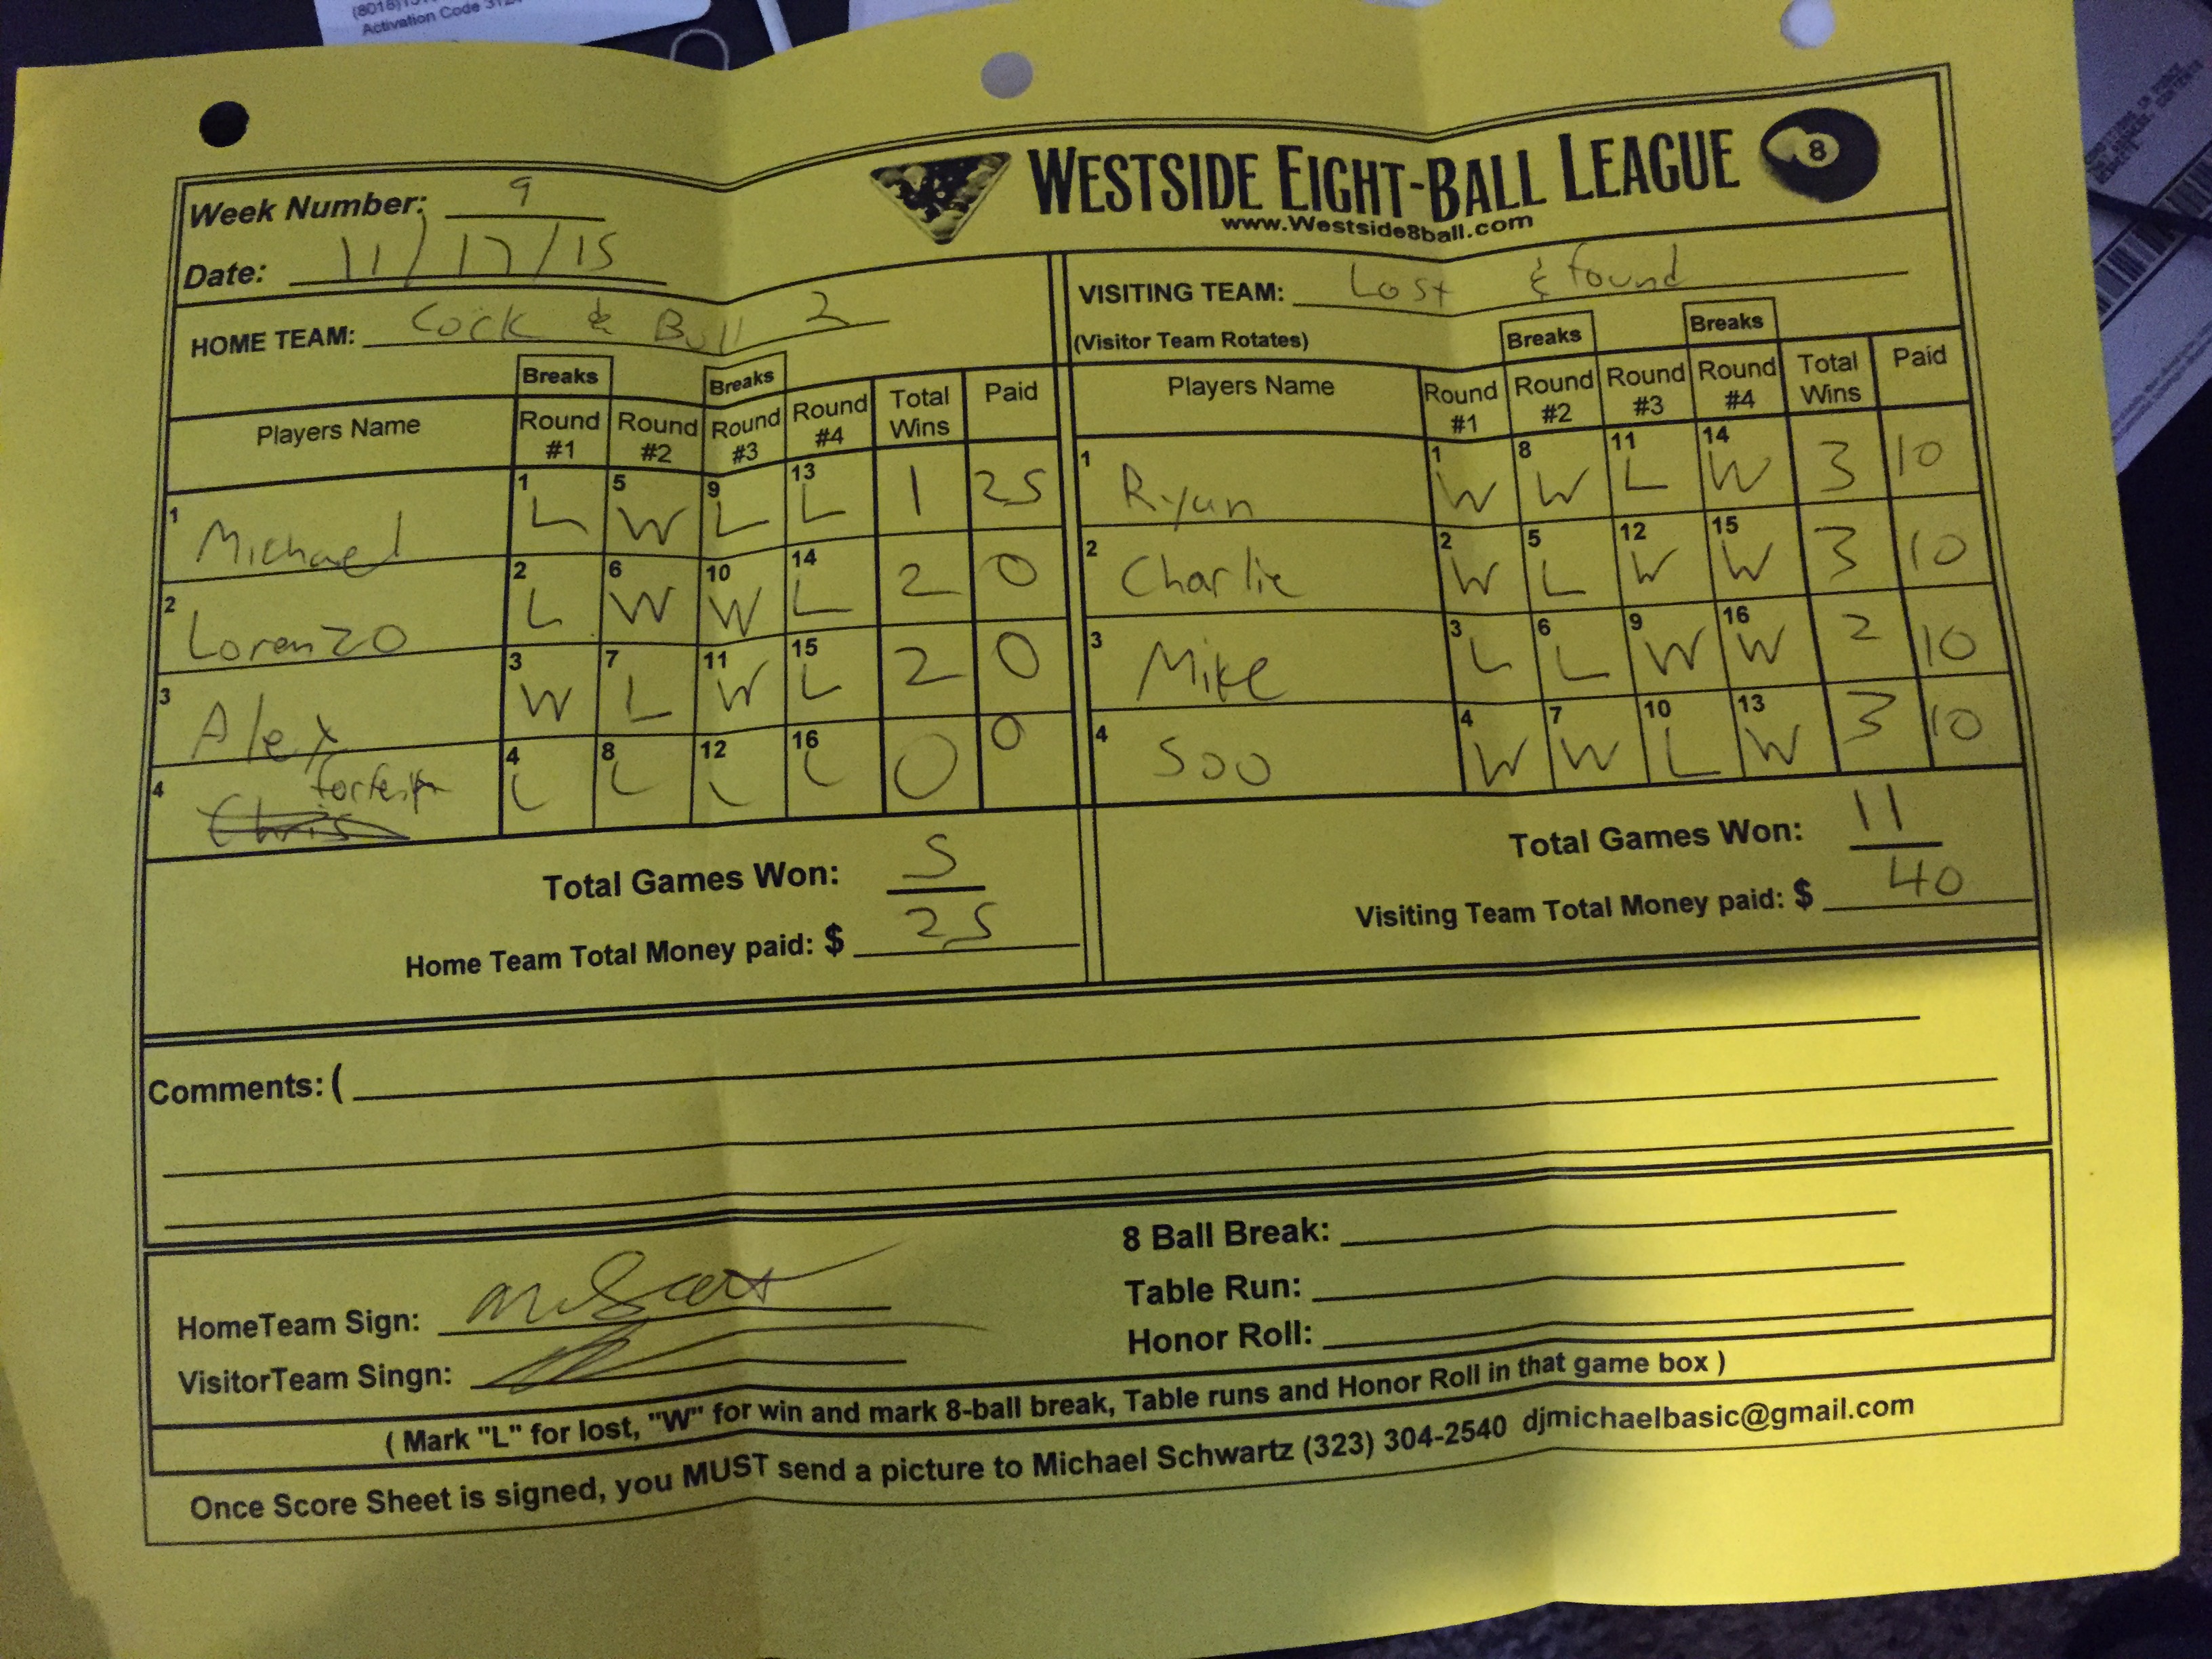 Activation Code
WESTSIDE EIGHT-BALL LEAGUE 8
www.Westside8ball.com
Week Number: 9
Date: 11/17/15
HOME TEAM: Cock & Bull 2
VISITING TEAM: Lost & found
(Visitor Team Rotates)
Breaks Breaks
Players Name Round #1 Round #2 Round #3 Round #4 Total Wins Paid
1 Michael 1 L 5 W 9 L 13 L 1 25
2 Lorenzo 2 L 6 W 10 W 14 L 2 0
3 Alex 3 W 7 L 11 W 15 L 2 0
4 Chris forfeit 4 L 8 L 12 L 16 L 0 0
Total Games Won: 5
Home Team Total Money paid: $ 25
Breaks Breaks
Players Name Round #1 Round #2 Round #3 Round #4 Total Wins Paid
1 Ryan 1 W 8 W 11 L 14 W 3 10
2 Charlie 2 W 5 L 12 W 15 W 3 10
3 Mike 3 L 6 L 9 W 16 W 2 10
4 Soo 4 W 7 W 10 L 13 W 3 10
Total Games Won: 11
Visiting Team Total Money paid: $ 40
Comments: (
8 Ball Break:
Table Run:
Honor Roll:
HomeTeam Sign:
VisitorTeam Singn:
( Mark "L" for lost, "W" for win and mark 8-ball break, Table runs and Honor Roll in that game box )
Once Score Sheet is signed, you MUST send a picture to Michael Schwartz (323) 304-2540 djmichaelbasic@gmail.com